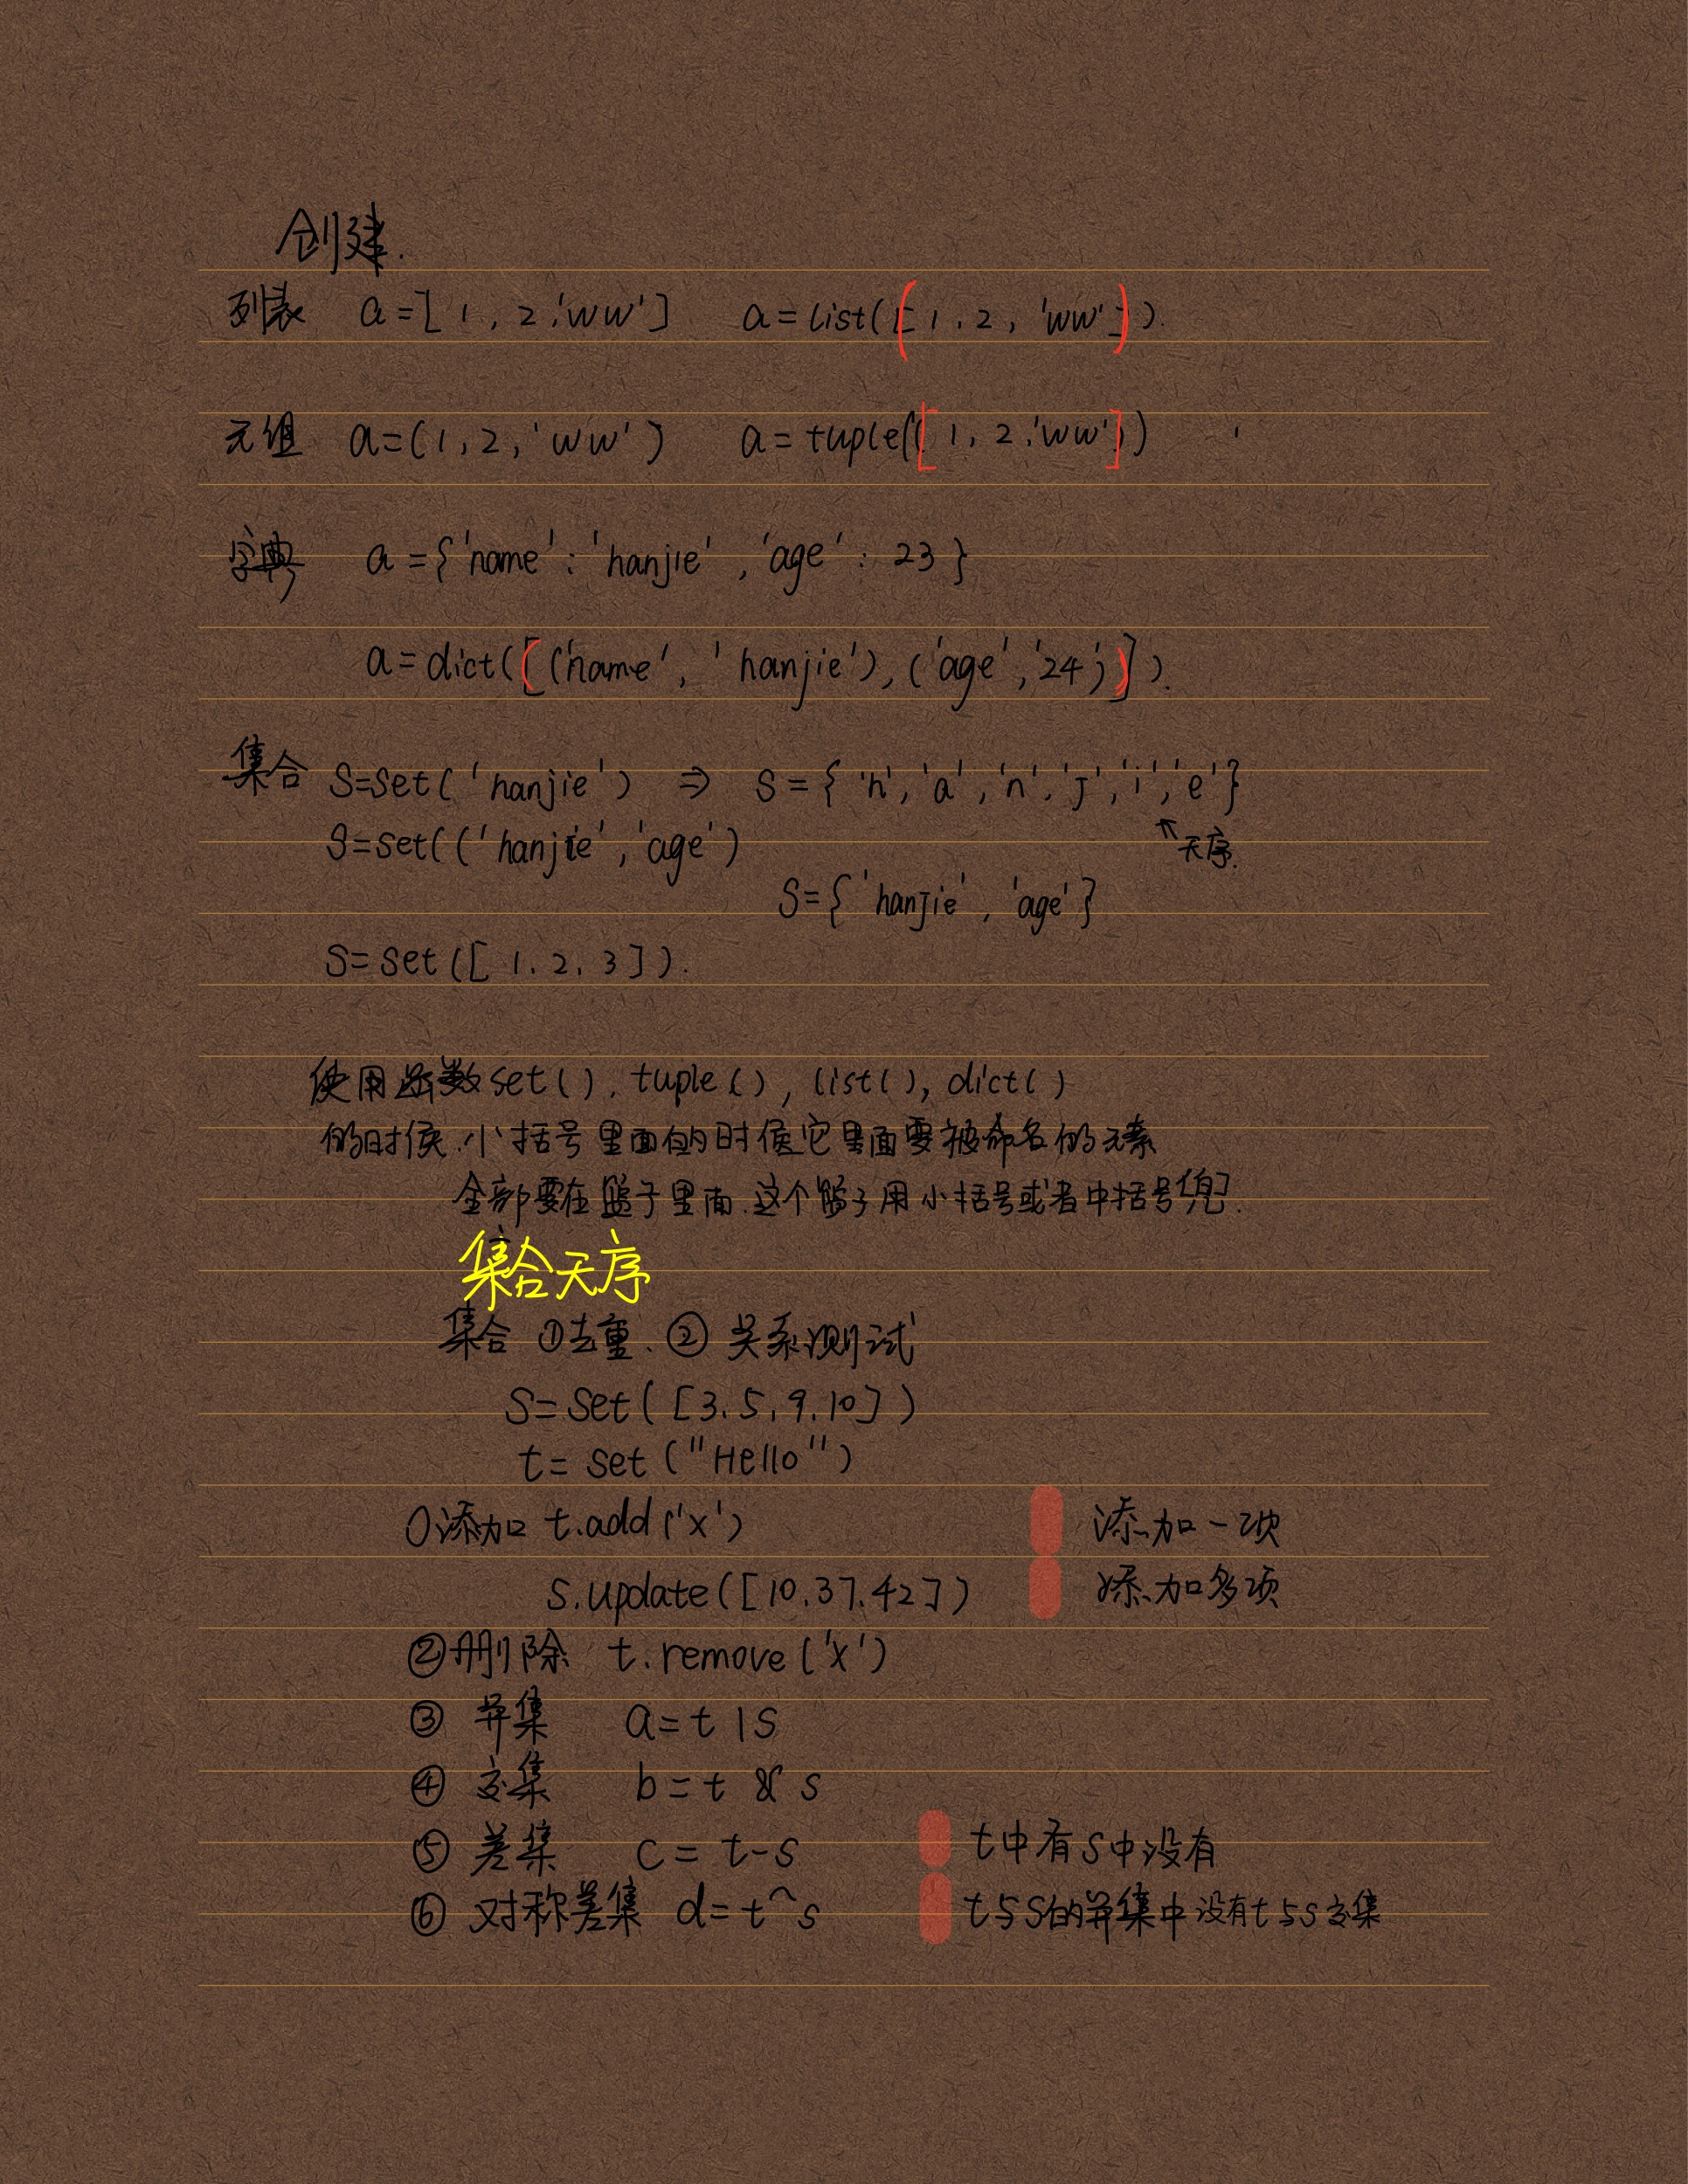 创建.
列表 a=[1,2,'ww'] a=list([1,2,'ww']).
元组 a=(1,2,'ww') a=tuple(([1,2,'ww']))
字典 a={'name':'hanjie','age':23}
a=dict([('name','hanjie'),('age','24')]).
集合 S=set('hanjie') ⇒ S={'h','a','n','j','i','e'}
S=set(('hanjie','age')
↖无序.
S={'hanjie','age'}
S=set([1,2,3]).
使用函数set(),tuple(),list(),dict()
的时候.小括号里面的时候它里面要被命名的元素
全部要在篮子里面.这个篮子用小括号或者中括号
集合无序
集合 ①去重.② 关系测试
S=set([3,5,9,10])
t=set("Hello")
①添加 t.add('x') 添加一项
s.update([10,37,42]) 添加多项
②删除 t.remove('x')
③ 并集 a=t|s
④ 交集 b=t & s
⑤ 差集 c=t-s t中有s中没有
⑥ 对称差集 d=t^s t与s的并集中没有t与s交集